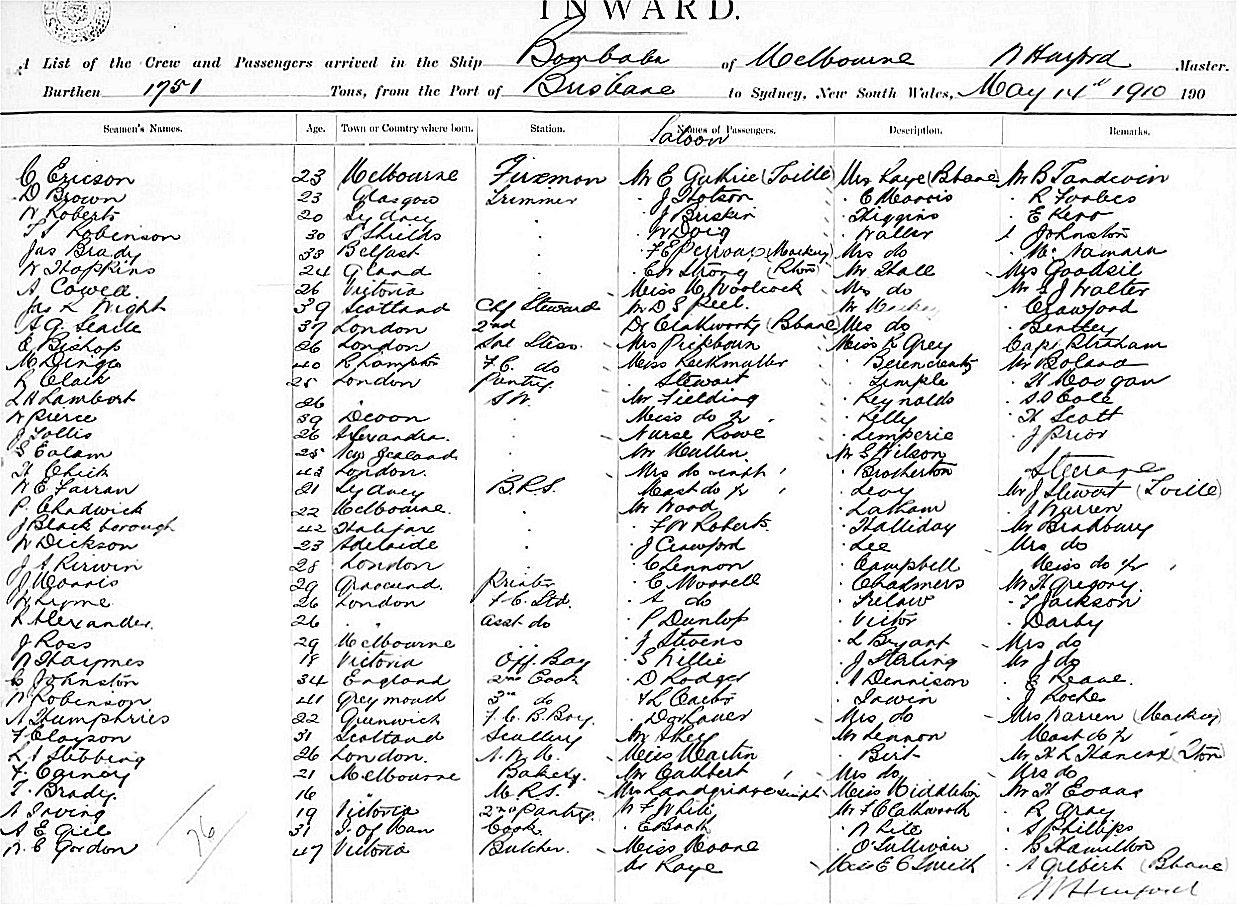 INWARD.
A List of the Crew and Passengers arrived in the Ship Bombala of Melbourne Master.
Burthen 1751 Tons, from the Port of Brisbane to Sydney, New South Wales, May 14th 1910 190
Seamen's Names. Age. Town or Country where born. Station. Names of Passengers. Description. Remarks.
Saloon
C Ericson 23 Melbourne Fireman Mr E Guthrie (Tville) Mrs Kaye (Bbane) Mr B Tandevin
D Brown 23 Glasgow Trimmer J Hotson E Morris R Forbes
W Roberts 20 Sydney J Briskin Higgins E Kerr
Robinson 30 S Shields W Doig Waller Johnston
Jas Brady 33 Belfast (Mackay) Mrs do McNamara
W Hopkins 24 Strong (Rton) Mr Hall Mrs Goodsil
A Cowell 26 Victoria Miss M Woolcock Mrs do Mr S J Walter
Jas L Wight 39 Scotland Chf Steward Mr D S Peel Mr Mackay Crawford
A G Slade 37 London 2nd (Bbane) Mrs do Bentley
E Bishop 26 London Mrs Miss K Grey Capt Straham
M Dingo 40 F.C. do Miss Mr Boland
K Clark 25 London Pantry Stewart Temple H Moogan
L H Lambert 26 " S.W. Mr Fielding Reynolds Cole
W Pierce 39 Devon Miss do Kelly H Scott
J Follis 26 Alexandra Nurse Rowe Lemperie J Prior
S Ealam 25 New Zealand Mr Mullen Mr S Wilson
H Chick 43 London Mrs do inft Brotherton Steerage
W E Farran 21 Sydney B.R.S. Mast do Levy Mr J Stewart (Tville)
P Chadwick 22 Melbourne Mr Wood Latham J Warren
J Blackborough 42 Halifax F W Roberts Halliday Mr Bradbury
W Dickson 23 Adelaide J Crawford Lee Mrs do
J A Kerwin 28 London C Lennon Campbell Miss do
J Morris 29 Printer C Morrell Chalmers Mr H Gregory
W Lyme 26 London F.C. Std. A do Trelaw F Jackson
R Alexander 26 " Asst do P Dunlop Victor Darby
J Ross 29 Melbourne J Stevens L Bryant Mrs do
W Haymes 18 Victoria Off. Boy S Willie J Stirling Mr J do
C Johnston 34 England 2nd Cook D Rodger A Dennison E Keane
W Robinson 41 Greymouth 3rd do H L Carter Irwin J Roche
A Humphries 22 Greenwich F.C.B. Boy Mrs do Mrs Warren (Mackay)
F Clayson 31 Scotland Scullery Mr Lennon Mast do
L J Stebbing 26 London Miss Martin Birt Mr H L Hancox (Rton)
F Carney 21 Melbourne Bakery Mr Cuthbert Mrs do Mrs do
T Brady 16 " M.R.S. Mrs Landgridge inft Miss Middleton Mr H Evans
A Irving 19 Victoria 2nd Pantry W F White Mr F C R Gray
A E Giel 31 I. of Man Cook E Booth W Hile S Phillips
W C Gordon 47 Victoria Butcher Miss Moore O'Sullivan B Hamilton
Mr Kaye Miss E C Smith A Gilbert (Bbane)